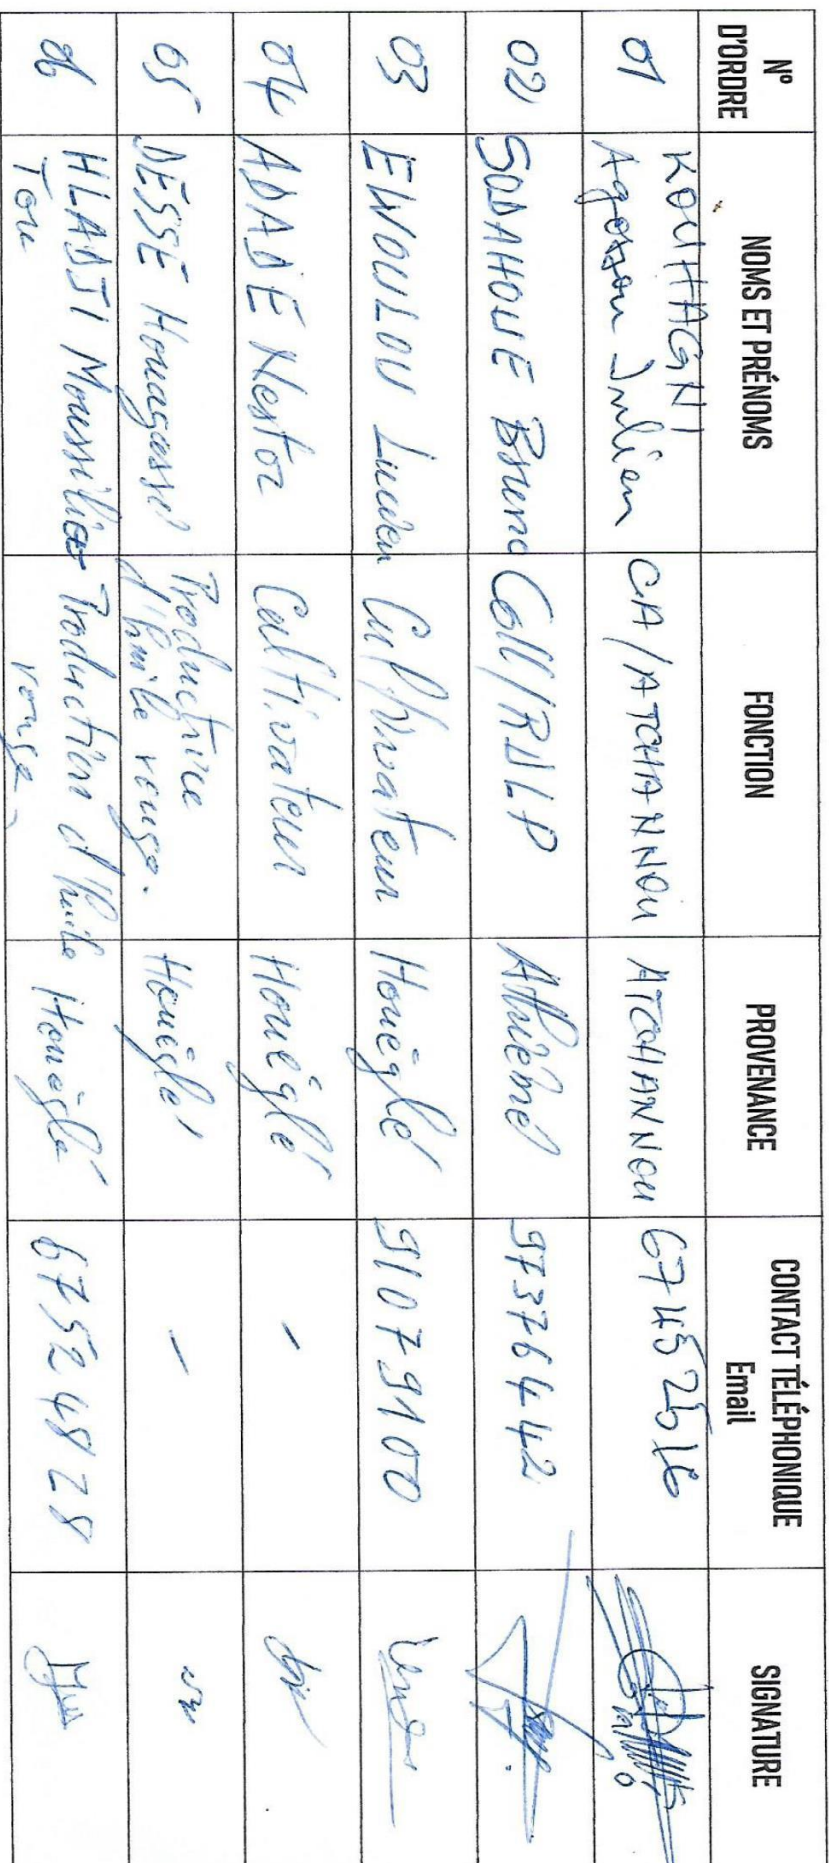 N° D'ORDRE NOMS ET PRÉNOMS FONCTION PROVENANCE CONTACT TÉLÉPHONIQUE Email SIGNATURE
01 KOUHAGNI Agossou Julien CA/ATCHANNOU ATCHANNOU 67452516
02 SODAHOUE Bruno Coll/RDLP Athiémé 97376442
03 EWOULOU Lucien Cultivateur Honéglé 91079100
04 ADADE Nestor Cultivateur Honéglé -
05 DESSE Houagassé Productrice d'huile rouge. Honéglé -
06 HLADJI Tou Production d'huile rouge Honéglé 67524828